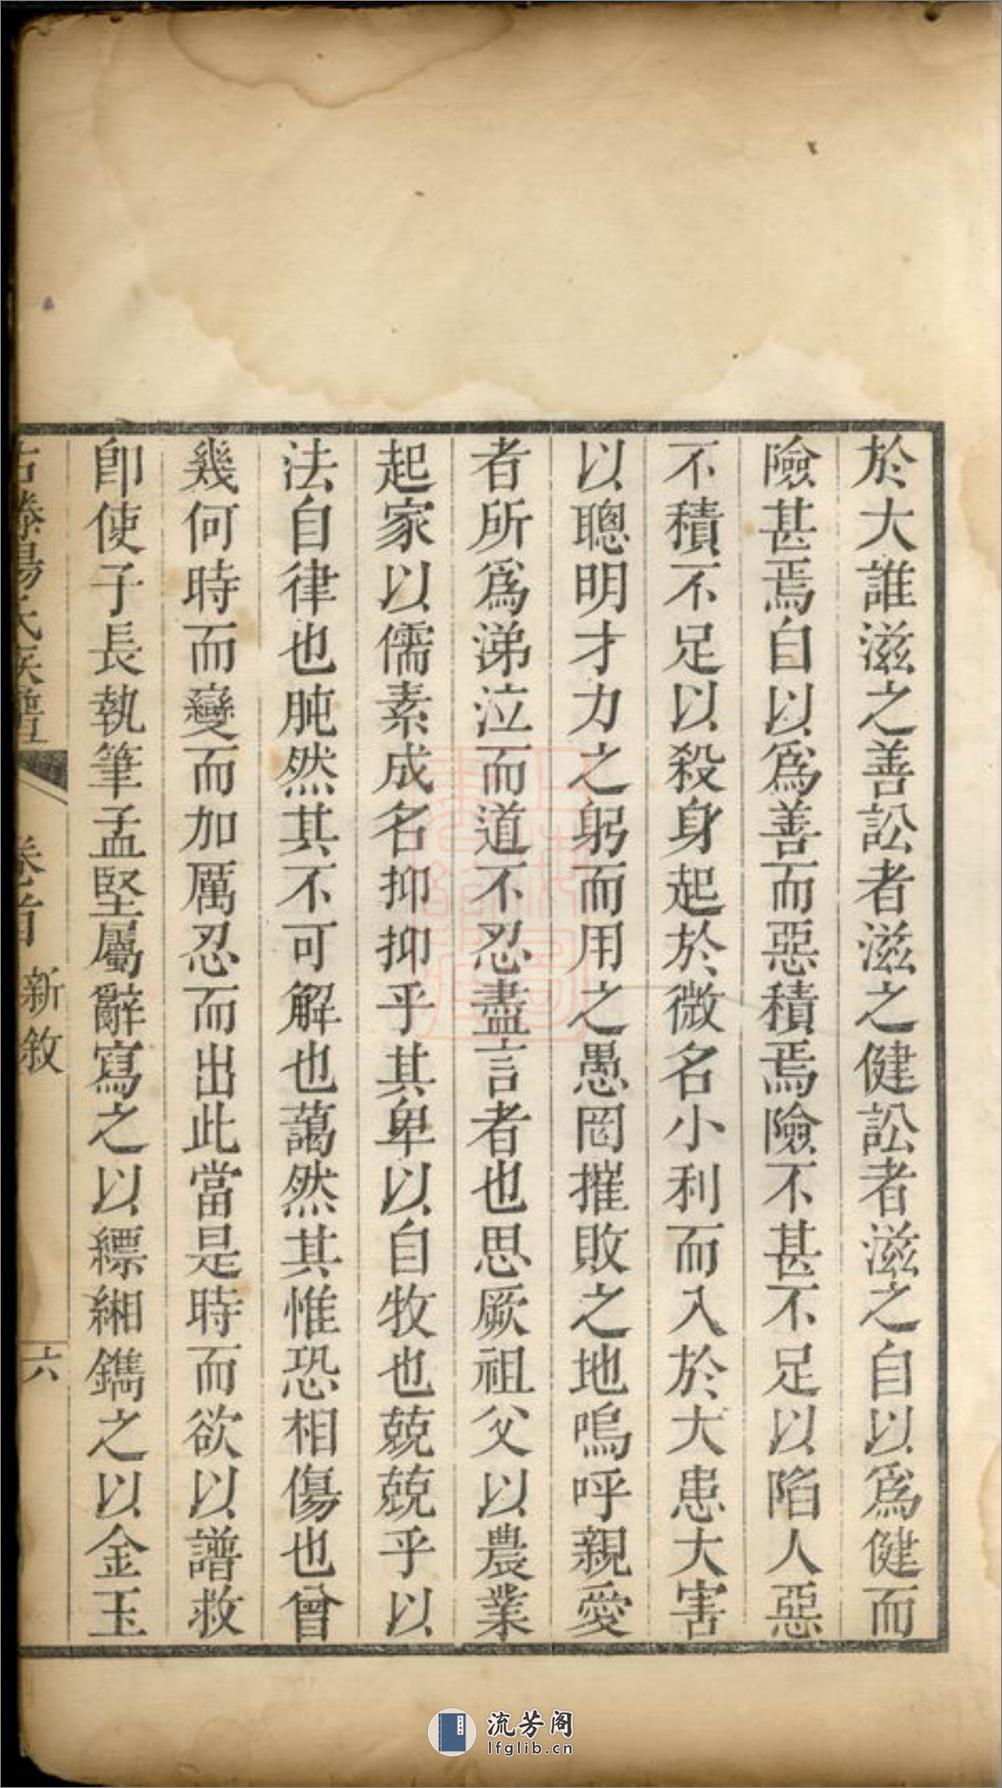 於大誰滋之善訟者滋之健訟者滋之自以爲健而
險甚焉自以爲善而惡積焉險不甚不足以陷人惡
不積不足以殺身起於微名小利而入於大患大害
以聰明才力之躬而用之愚罔摧敗之地嗚呼親愛
者所爲涕泣而道不忍盡言者也思厥祖父以農業
起家以儒素成名抑抑乎其卑以自牧也兢兢乎以
法自律也肫然其不可解也藹然其惟恐相傷也曾
幾何時而變而加厲忍而出此當是時而欲以譜救
卽使子長執筆孟堅屬辭寫之以縹緗鐫之以金玉
氏族譜 卷首 新敘 六
流芳阁
lfglib.cn